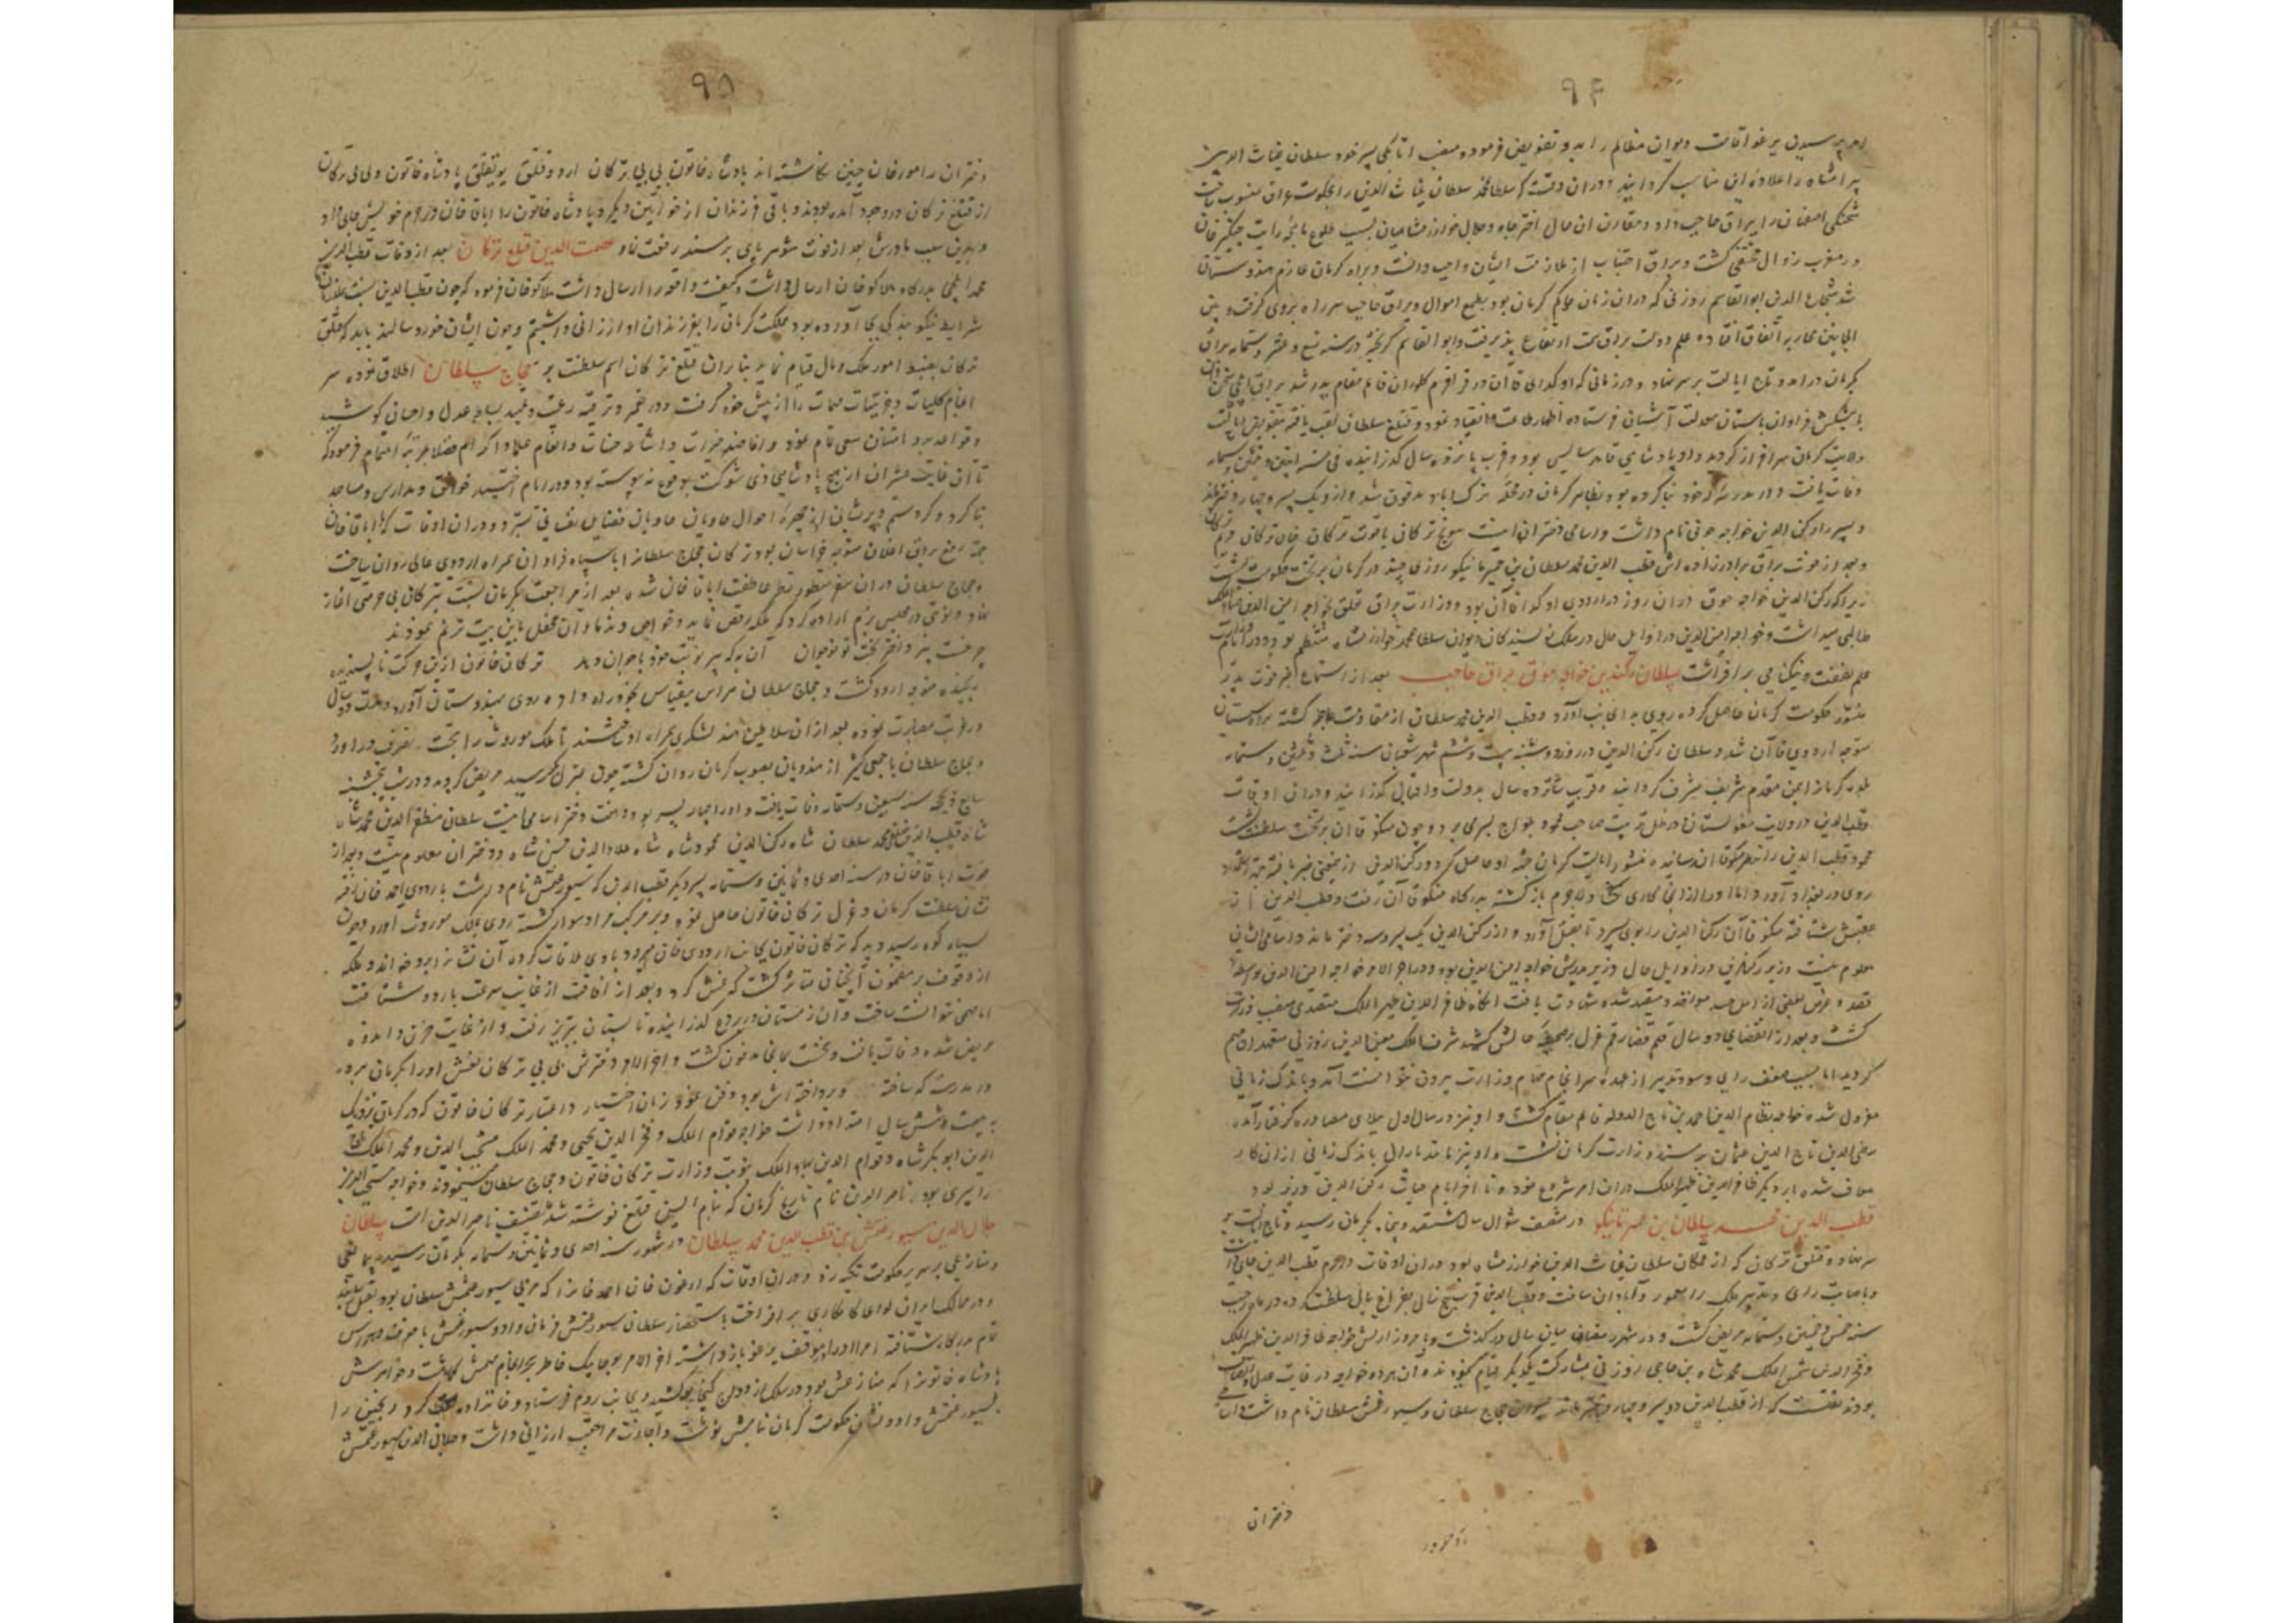 ۹۴
امر پرسیدن یرغو اقامت دیوان مظالم را بدو تفویض فرمود و منصب اتابکی پسر خود سلطان غیاث الدین
پیرامشاه را علاوه آن مناسب گردانید و دران وقت که سلطان محمد سلطان غیاث الدین را بحکومت عراق منسوب ساخت
شحنگی اصفهان را ببراق حاجب داد و مقارن آن حال اختر جاه و جلال خوارزمشاهیان بسبب طلوع ماهچه رایت چنگیز خان
در مغرب زوال مختفی گشت و براق اجتناب از ملازمت ایشان واجب دانست و براه کرمان عازم هندوستان
شد شجاع الدین ابوالقاسم زوزنی که دران زمان حاکم کرمان بود بطمع اموال براق حاجب سر راه بر وی گرفت و بین
الجانبین محاربه اتفاق افتاده علم دولت براق سمت ارتفاع پذیرفت و ابوالقاسم گریخته در سنه تسع و عشر و ستمایه براق
بکرمان درآمد و تاج ایالت بر سر نهاد و در زمانی که اوکدای قاآن در قراقرم کلوران قایم مقام پدر شد براق ایلچی سخن دان
با پیشکش فراوان باستان معدلت آشیان فرستاده اظهار طاعت و انقیاد نمود و قتلغ سلطان لقب یافته بتفویض ایالت
ولایت کرمان سرافراز گردید و او پادشاهی قاهر سایس بود و قرب پانزده سال گذرانیده فی سنه اثنین و ثلثین و ستمایه
وفات یافت و در مدرسه که خود بنا کرده بود بظاهر کرمان در محله ترک اباد مدفون شد و ازو یک پسر و چهار دختر ماند
و پسر رکن الدین خواجه جوق نام داشت و اسامی دختران اینست سونج ترکان یاقوت ترکان خان ترکان مریم ترکان
و بعد از فوت براق برادرزاده اش قطب الدین محمد سلطان بن حمیر تاینکو روزی چند در کرمان بر تخت حکومت نشست
زیرا که رکن الدین خواجه جوق دران روز در اردوی اوکدا قاآن بود و وزارت براق تعلق بخواجه امین الدین ضیاء الملک
طالبی میداشت و خواجه امین الدین در اوایل حال در سلک نویسندگان دیوان سلطان محمد خوارزمشاه منتظم بود و در ایام
علم بعفت و نیکنامی بر افراشت سلطان رکن الدین خواجه جوق براق حاجب بعد از استماع خبر فوت پدر
منشور حکومت کرمان حاصل کرده روی به آن جانب آورد و قطب الدین محمد سلطان از مقاومت عاجز گشته براه سیستان
متوجه اردوی قاآن شد و سلطان رکن الدین در روز دوشنبه بیست و ششم شهر شعبان سنه ثلث و ثلثین و ستمایه
بلده کرمان از یمن مقدم شریف مشرف گردانید و قرب شانزده سال بدولت و اقبال گذرانید و دران اوقات
قطب الدین در ولایت مغولستان در ظل تربیت صاحب محمود یلواج بسر می برد و چون منکوقاان بر تخت سلطنت نشست
محمود قطب الدین را بنظر منکوقاان رسانیده منشور ایالت کرمان جهة او حاصل کرد و رکن الدین از یمعنی خبر یافته
روی در بغداد آورد و لاجرم باز گشته بدرگاه منکوقاآن رفت و قطب الدین از
عقبش شتافته منکوقاآن رکن الدین را بوی سپرد تا بقتل آورد و از رکن الدین یک پسر و سه دختر ماند و اسامی ایشان
معلوم نیست وزیر رکن الدین در اوایل حال وزیر پدرش خواجه امین الدین بود و در اخر الامر خواجه امین الدین بواسطه
قصد و غرض بعضی از اهل حسد مواخذ و مقید شده شهادت یافت انگاه ظافر الدین ظهیر الملک متصدی منصب وزارت
گشت و بعد از انقضای دو سال قلم قضا رقم عزل بر صحیفه حالش کشید شرف الملک معین الدین زوزنی متعهد ان مهم
گردید اما بسبب ضعف رای و سوء تدبیر از عهده سرانجام مهام وزارت بیرون نتوانست آمد و باندک زمانی
معزول شده خواجه نظام الدین احمد بن تاج الدوله قایم مقام گشت و او نیز در سال اول مبتلای مصادره گرفتار آمده
رضی الدین تاج الدین عثمان بر مسند وزارت کرمان نشست و او نیز مانند باران باندک زمانی ازان کار
معاف شده بار دیگر ظافر الدین ظهیر الملک دران امر شروع نمود و تا اخر ایام حیات رکن الدین وزیر بود
قطب الدین محمد سلطان بن حمیر تاینکو در منتصف شوال سال ششصد و پنجاه بکرمان رسید و تاج ایالت بر
سر نهاد و قتلق ترکان که از قمکان سلطان غیاث الدین خوارزمشاه بود دران اوقات در حرم قطب الدین جای داشت
و باصابت رای و تدبیر ملک را معمور و آبادان ساخت و قطب الدین قریب پنج سال بفراغ بال سلطنت کرده در ماه رجب
سنه خمس و خمسین و ستمایه مریض گشت و در شهر رمضان همان سال درگذشت و بامر وزارتش خواجه ظافر الدین ظهیر الملک
و فخر الدین شمس الملک محمد شاه بن حاجی زوزنی بمشارکت یکدیگر قیام مینمودند و آن هر دو خواجه در غایت عدل و انصاف
بودند نقلست که از قطب الدین دو پسر و چهار دختر ماند پسران حجاج سلطان و سیورغتمش سلطان نام داشت و اسامی
دختران
۹۵
دختران را مورخان چنین نگاشته اند پادشاه خاتون بی بی ترکان اردو قتلق یول قتلق پادشاه خاتون و بی بی ترکان
از قتلغ ترکان در وجود آمده بودند و باقی فرزندان از خواتین دیگر و پادشاه خاتون را اباقا خان در حرم خویش جای داد
و بدین سبب مادرش بعد از فوت شوهر پای بر مسند رفعت نهاد عصمت الدین قتلغ ترکان بعد از وفات قطب الدین
محمد ایلچی بدرگاه هلاکوخان ارسال داشت و کیفیت واقعه را ارسال داشت هلاکوخان فرمود که چون قطب الدین
شرایط نیکو بندگی بجا آورده بود مملکت کرمان را بفرزندان او ارزانی داشتیم و چون ایشان خوردسالند باید که قتلق
ترکان بضبط امور ملک و مال قیام نماید بنا بران قتلغ ترکان اسم سلطنت بر حجاج سلطان اطلاق نموده سر
انجام کلیات و جزئیات مهمات را از پیش خود گرفت و در تعمیر و ترفیه رعیت و تمهید بساط عدل و احسان کوشید
و قواعد بر و امتنان سعی تمام نمود و افاضه خیرات و اشاعه حسنات و انعام علما و اکرام فضلا بمرتبه اهتمام فرمود که
تا آن غایت عشران از هیچ پادشاهی ذی شوکت بوقوع نه پیوسته بود و در ایام اختیار خوانق و مدارس و مساجد
بنا کرد و گرد ستم و پریشانی از چهره احوال
جهة دفع براق اغلان متوجه خراسان بود ترکان حجاج سلطان را با سپاه فراوان همراه اردوی عالی روان ساخت
و حجاج سلطان دران سفر منظور نظر عاطفت اباقا خان شده بعد از مراجعت بکرمان نسبت بترکان بی حرمتی آغاز
نهاد و نوبتی در مجلس بزم اراده کرد که ملکه رقص نماید و خواص و ندما دران محفل باین بیت ترنم نمودند
چرخست پیر و اختر بخت تو نوجوان آن به که پیر نوبت خود با جوان دهد ترکان خاتون ازین حرکت ناپسندیده
رنجیده متوجه اردو گشت و حجاج سلطان هراس بیقیاس بخود راه داده روی بهندوستان آورد و مدت ده سال
در غربت مصابرت نموده بعد ازان سلاطین هند لشکری همراه او ساختند تا ملک موروث را بتحت تصرف دراورد
و حجاج سلطان با جمعی کثیر از هندویان بصوب کرمان روان گشته چون بمنزل بکر رسید مریض گردید و در شب پنجشنبه
سابع ذیحجه سنه سبعین و ستمایه وفات یافت و او را چهار پسر بود و هفت دختر اسامی اینست سلطان مظفر الدین محمد شاه
شاه قطب الدین طغی محمد سلطان شاه رکن الدین محمود شاه شاه علاء الدین حسن شاه و دختران معلوم نیست و بعد از
فوت اباقا خان در سنه احدی و ثمانین و ستمایه پسر دیگر قطب الدین که سیورغتمش نام داشت باردوی احمد خان رفته
نشان سلطنت کرمان و عزل ترکان خاتون حاصل نمود و بر مرکب مراد سوار گشته روی بملک موروث آورد و چون
بسیاه کوه رسید دید که ترکان خاتون بجانب اردوی خان میرود باوی ملاقات کرده آن نشانرا برو خواند و ملکه
از وقوف بر مضمون آن چنان متاثر گشت که غش کرد و بعد از افاقت از غایت سرعت باردو شتافت
اما مهمی نتوانست ساخت و آن زمستان در بردع گذرانیده تابستان بتبریز رفت و از غایت حزن و اندوه
مریض شده وفات یافت و بتخت همانجا مدفون گشت و اخر الامر دخترش بی بی ترکان نعش او را بکرمان برده
در مدرسه که ساخته و پرداخته اش بود دفن نمود و زمان اختیار و اعتبار ترکان خاتون که در کرمان نزدیک
به بیست و شش سال امتداد داشت خواجه قوام الملک و فخر الدین یحیی و مجد الملک منتجب الدین و مجد الملک تاج
الدین ابوبکر شاه و قوام الدین ضیاء الملک بنوبت وزارت ترکان خاتون و حجاج سلطان مینمودند و خواجه منتجب الدین
را پسری بود ناصر الدین نام تاریخ کرمان که بنام ایسن قتلغ نوشته شد تصنیف ناصر الدین است سلطان
جلال الدین سیورغتمش بن قطب الدین محمد سلطان در شهور سنه احدی و ثمانین و ستمایه بکرمان رسیده بی مانعی
و منازعی بر سریر حکومت تکیه زد و دران اوقات که ارغون خان احمد خان را که مربی سیورغتمش سلطان بود بقتل رسانید
و در ممالک ایران لوای کامکاری بر افراخت باستحضار سلطان سیورغتمش فرمان داد و سیورغتمش با خوف و هراس
تمام بدرگاه شتافته امرا او را در موقف یرغو بازداشته اخر الامر بوجایک خاطر بر انجام مهمش گماشت و خواهرش
پادشاه خاتونرا که منازعش بود در سلک ازدواج گیخاتو کشید و بجانب روم فرستاد و خانزاده کرد و نجین را
بسیورغتمش داد و نشان حکومت کرمان بنامش نوشت و اجازت مراجعت ارزانی داشت و جلال الدین سیورغتمش